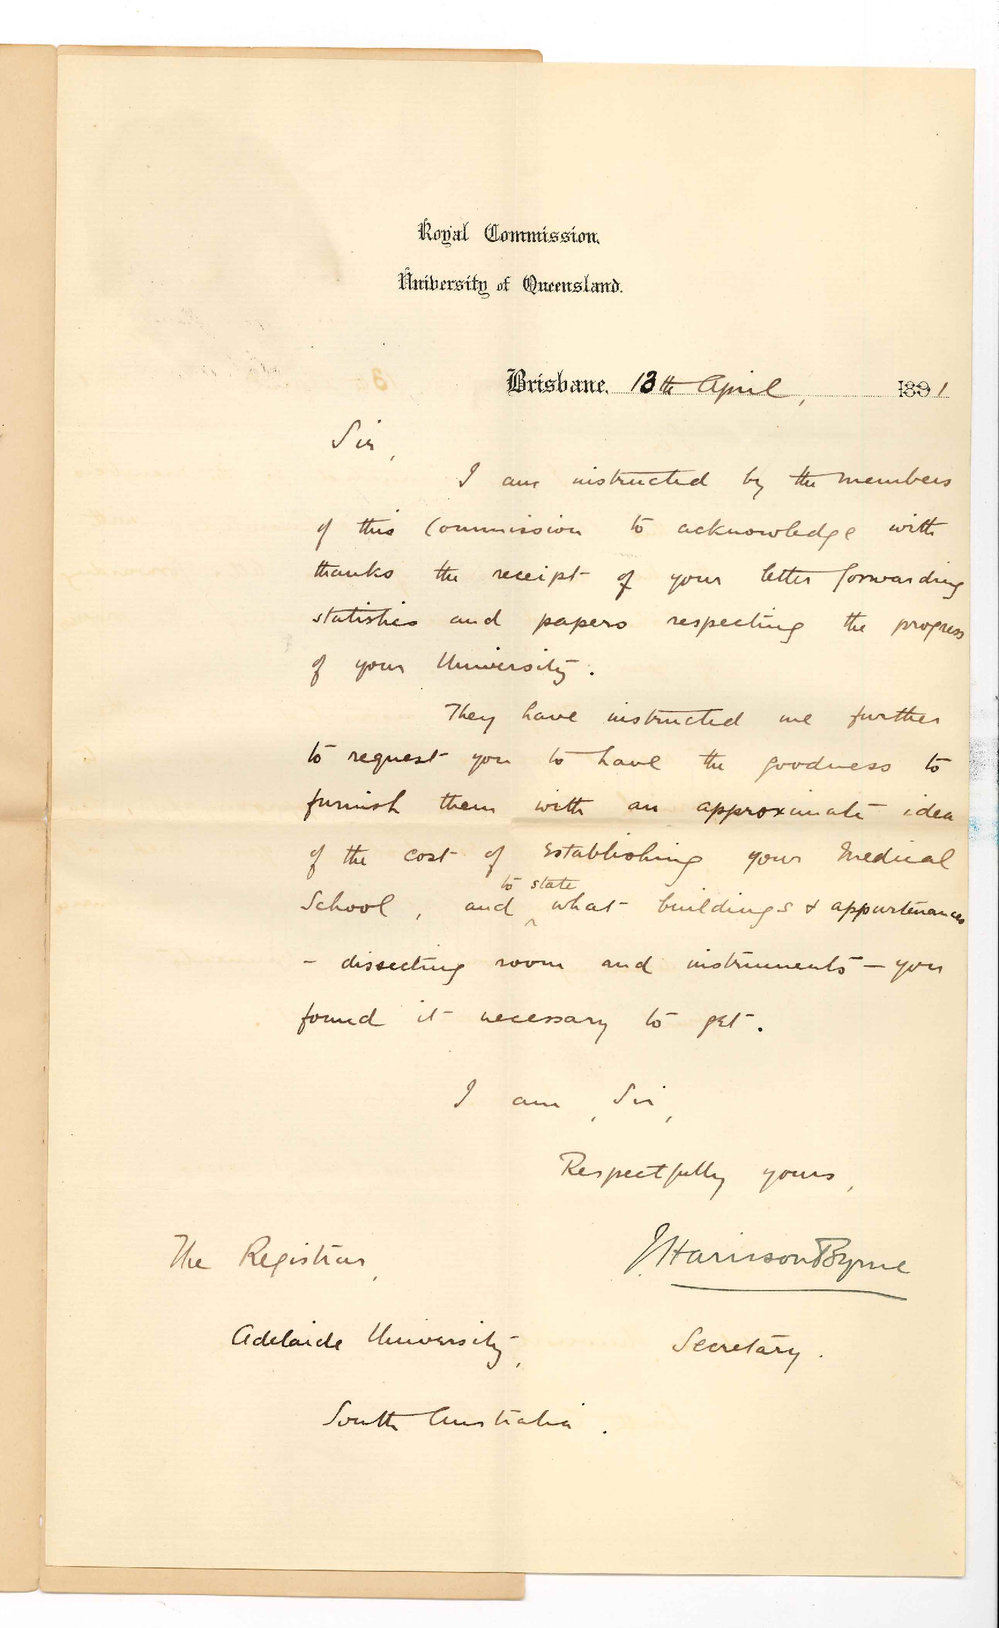 Royal Commission,
University of Queensland.
Brisbane, 13th April, 1891
Sir,
I am instructed by the members
of this Commission to acknowledge with
thanks the receipt of your letter forwarding
statistics and papers respecting the progress
of your University.
They have instructed me further
to request you to have the goodness to
furnish them with an approximate idea
of the cost of Establishing your Medical
to state
School, and ‸ what buildings & appurtenances
- dissecting room and instruments - you
found it necessary to get.
I am, Sir,
Respectfully yours,
J. Harrison Byrne
The Registrar,
Adelaide University,
Secretary.
South Australia.